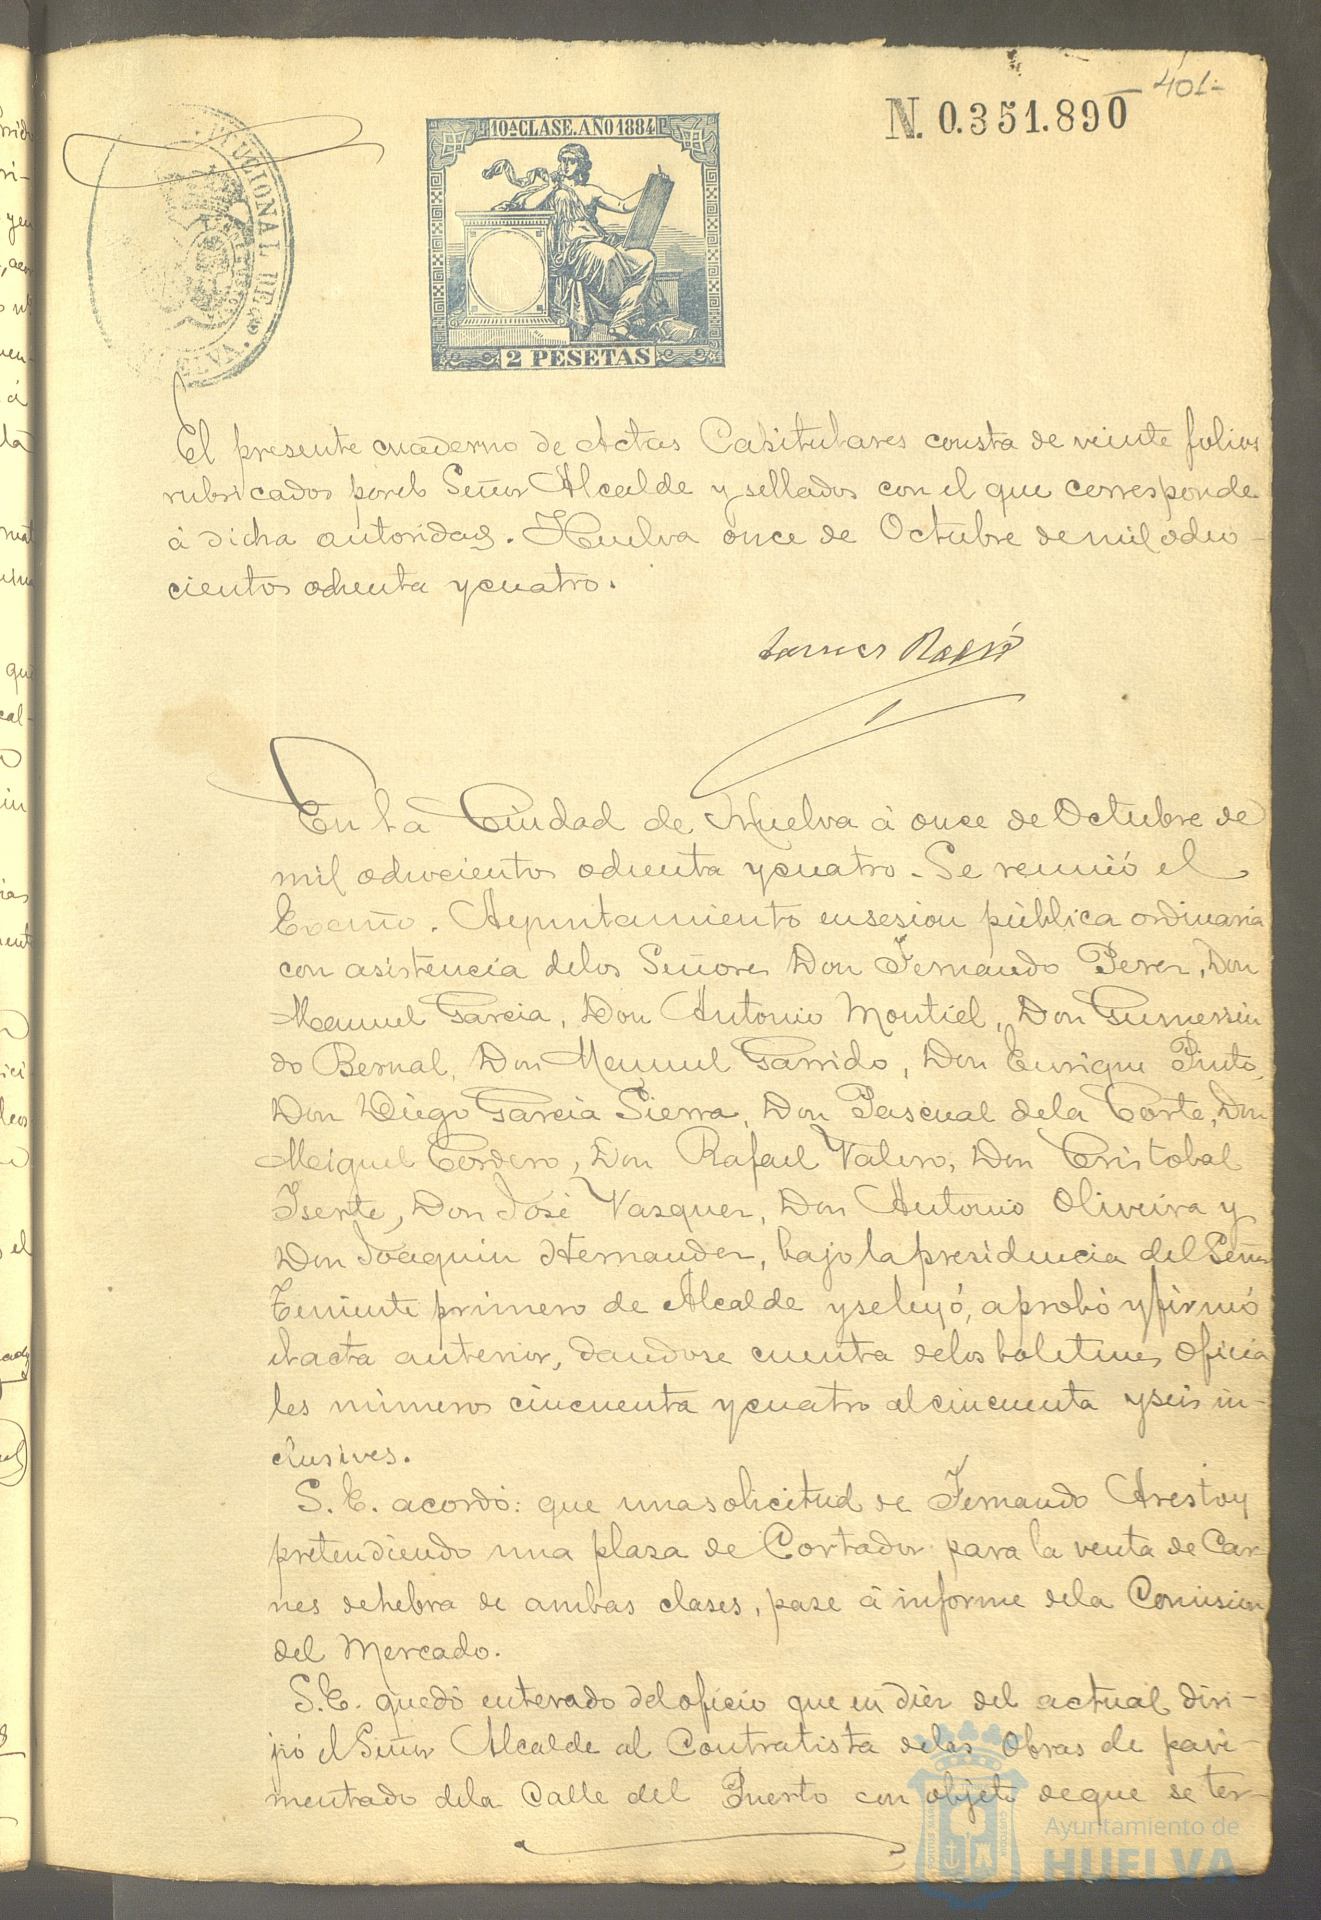 401-
N. 0.351.890
10ª CLASE. AÑO 1884
2 PESETAS
El presente cuaderno de Actas Capitulares consta de veinte folios
rubricados por el Señor Alcalde y sellados con el que corresponde
á dicha autoridad. Huelva once de Octubre de mil ocho-
cientos ochenta y cuatro.
En la Ciudad de Huelva á once de Octubre de
mil ochocientos ochenta y cuatro. Se reunió el
Excmo. Ayuntamiento en sesion pública ordinaria
con asistencia de los Señores Don Fernando Perez, Don
Manuel Garcia, Don Antonio Montiel, Don Gumersin
do Bernal, Don Manuel Garrido, Don Enrique Pinto,
Don Diego Garcia Sierra, Don Pascual de la Corte, Don
Miguel Cordero, Don Rafael Valero, Don Cristobal
Iserte, Don José Vazquez, Don Antonio Oliveira y
Don Joaquin Hernandez, bajo la presidencia del Señor
Teniente primero de Alcalde y se leyó, aprobó y firmó
el acta anterior, dandose cuenta de los boletines oficia
les números cincuenta y cuatro al cincuenta y seis in-
clusives.
S. E. acordó: que una solicitud de Fernando Arestoy
pretendiendo una plaza de Cortador para la venta de Car-
nes de hebra de ambas clases, pase á informe de la Comision
del Mercado.
S. E. quedó enterado del oficio que en diez del actual diri-
jió el Señor Alcalde al Contratista de las Obras de pavi-
mentado de la Calle del Puerto con objeto de que se ter-
Ayuntamiento de
HUELVA